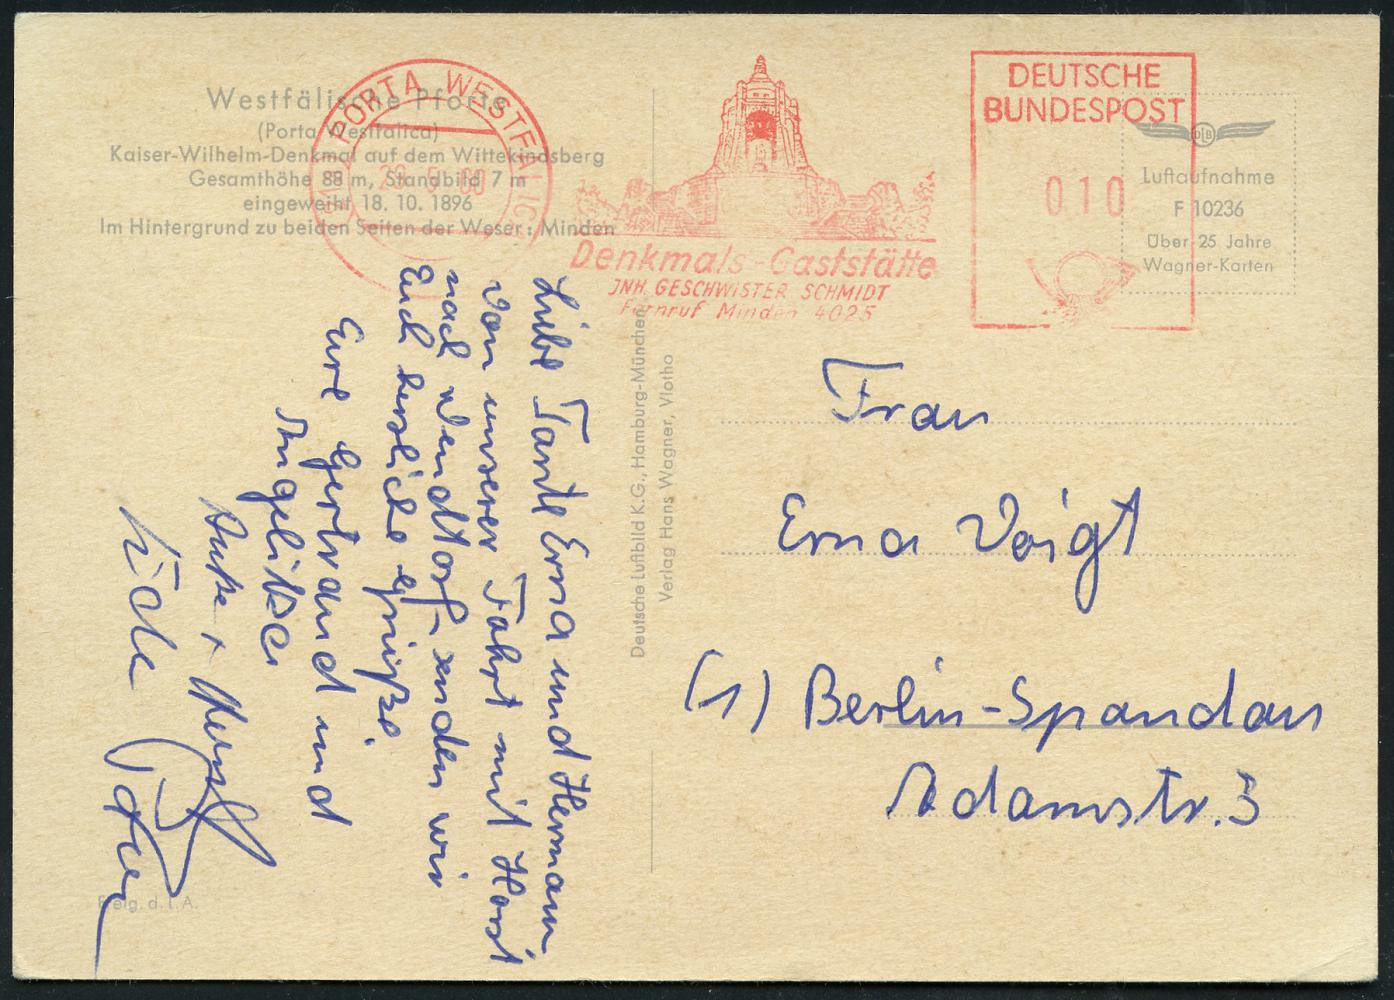 Westfälische Pforte
(Porta Westfalica)
Kaiser-Wilhelm-Denkmal auf dem Wittekindsberg
Gesamthöhe 88 m, Standbild 7 m
eingeweiht 18. 10. 1896
Im Hintergrund zu beiden Seiten der Weser: Minden
PORTA WESTFALICA
Denkmals-Gaststätte
JNH. GESCHWISTER SCHMIDT
Fernruf Minden 4025
DEUTSCHE
BUNDESPOST
010
DLB
Luftaufnahme
F 10236
Über 25 Jahre
Wagner-Karten
Liebe Tante Erna und Hermann
von unserer Fahrt mit Horst
nach Wendtorf senden wir
Euch herzliche Grüße.
Eure Gertraud und
Angelika
Anke +
Deutsche Luftbild K.G., Hamburg-München
Verlag Hans Wagner, Vlotho
Frau
Erna Voigt
(1) Berlin-Spandau
Adamstr. 3
Freig. d. L. A.